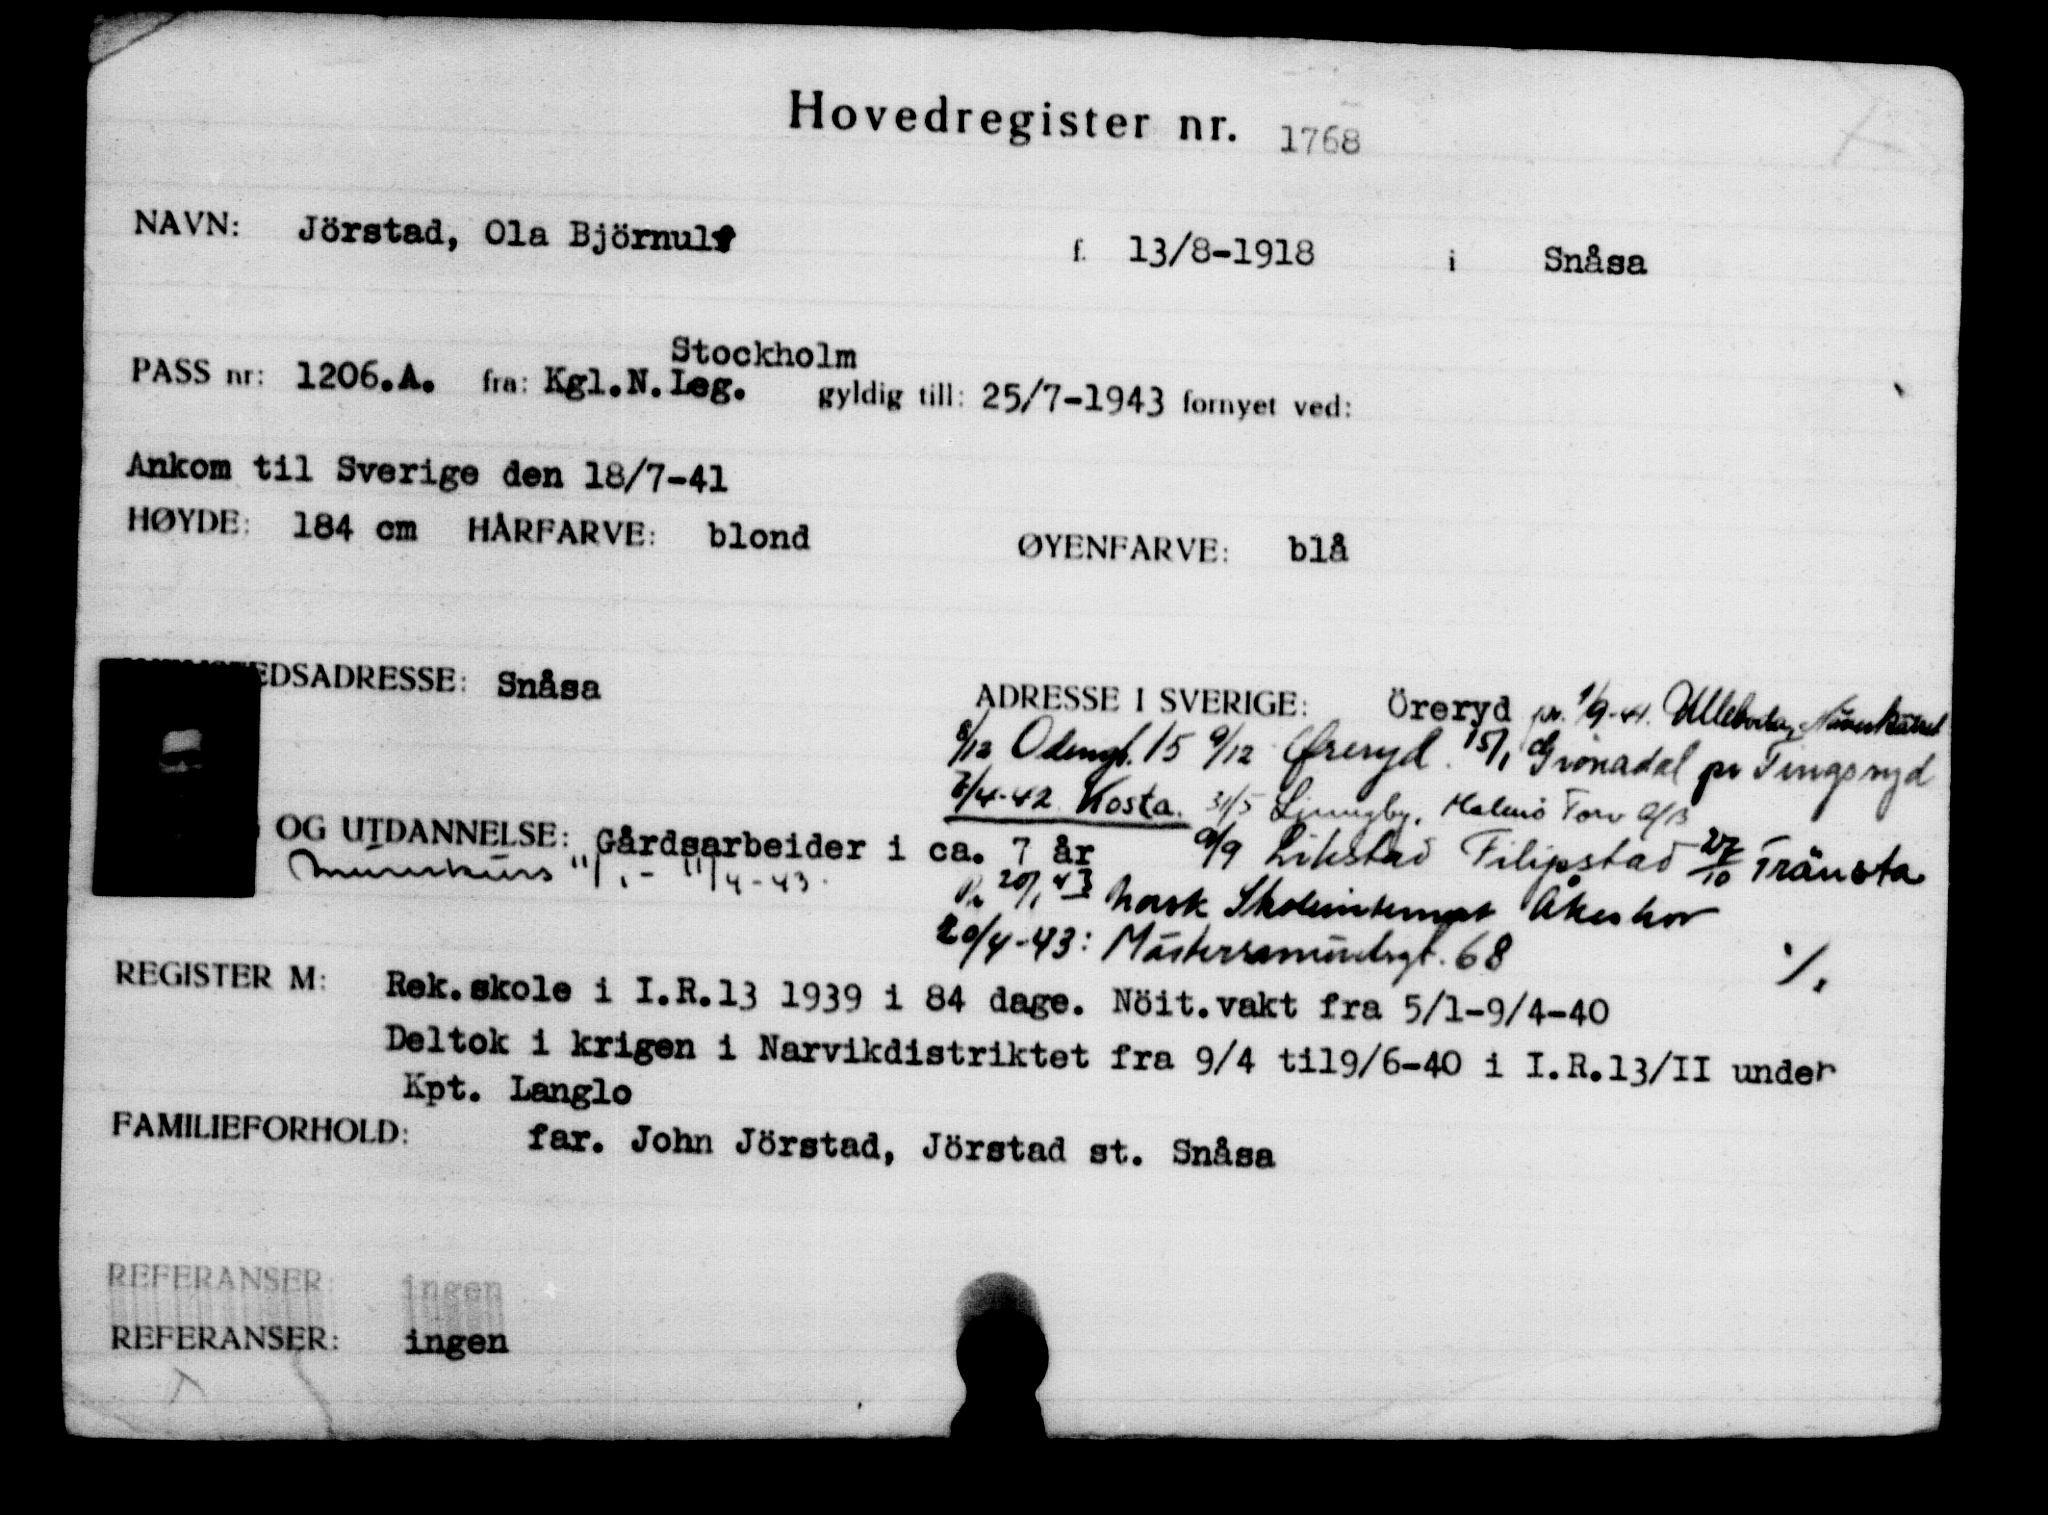 Hovedregister nr. 1768
NAVN: Jörstad, Ola Björnulf f. 13/8-1918 i Snåsa
Stockholm
PASS nr: 1206.A. fra: Kgl.N.Leg. gyldig till: 25/7-1943 fornyet ved:
Ankom til Sverige den 18/7-41
HØYDE: 184 cm HÅRFARVE: blond ØYENFARVE: blå
EDSADRESSE: Snåsa ADRESSE I SVERIGE: Öreryd pr. 1/9-41.
8/12 Odengt. 15 9/12 Øreryd. 15/1 Grönadal pr Tingsryd
7/4-42 Kosta. 31/5 Ljungby, Malmö Torv A/B
OG UTDANNELSE: Gårdsarbeider i ca. 7 år 9/9 Filipstad 27/10 Tränsta
11/1- 11/4-43. Pr 20/1 43 Norsk Skoleinternat Åkeshov
20/4-43: 68 ./.
REGISTER M: Rek.skole i I.R.13 1939 i 84 dage. Nöit.vakt fra 5/1-9/4-40
Deltok i krigen i Narvikdistriktet fra 9/4 til9/6-40 i I.R.13/II under
Kpt. Langlo
FAMILIEFORHOLD: far. John Jörstad, Jörstad st. Snåsa
REFERANSER: ingen
REFERANSER: ingen